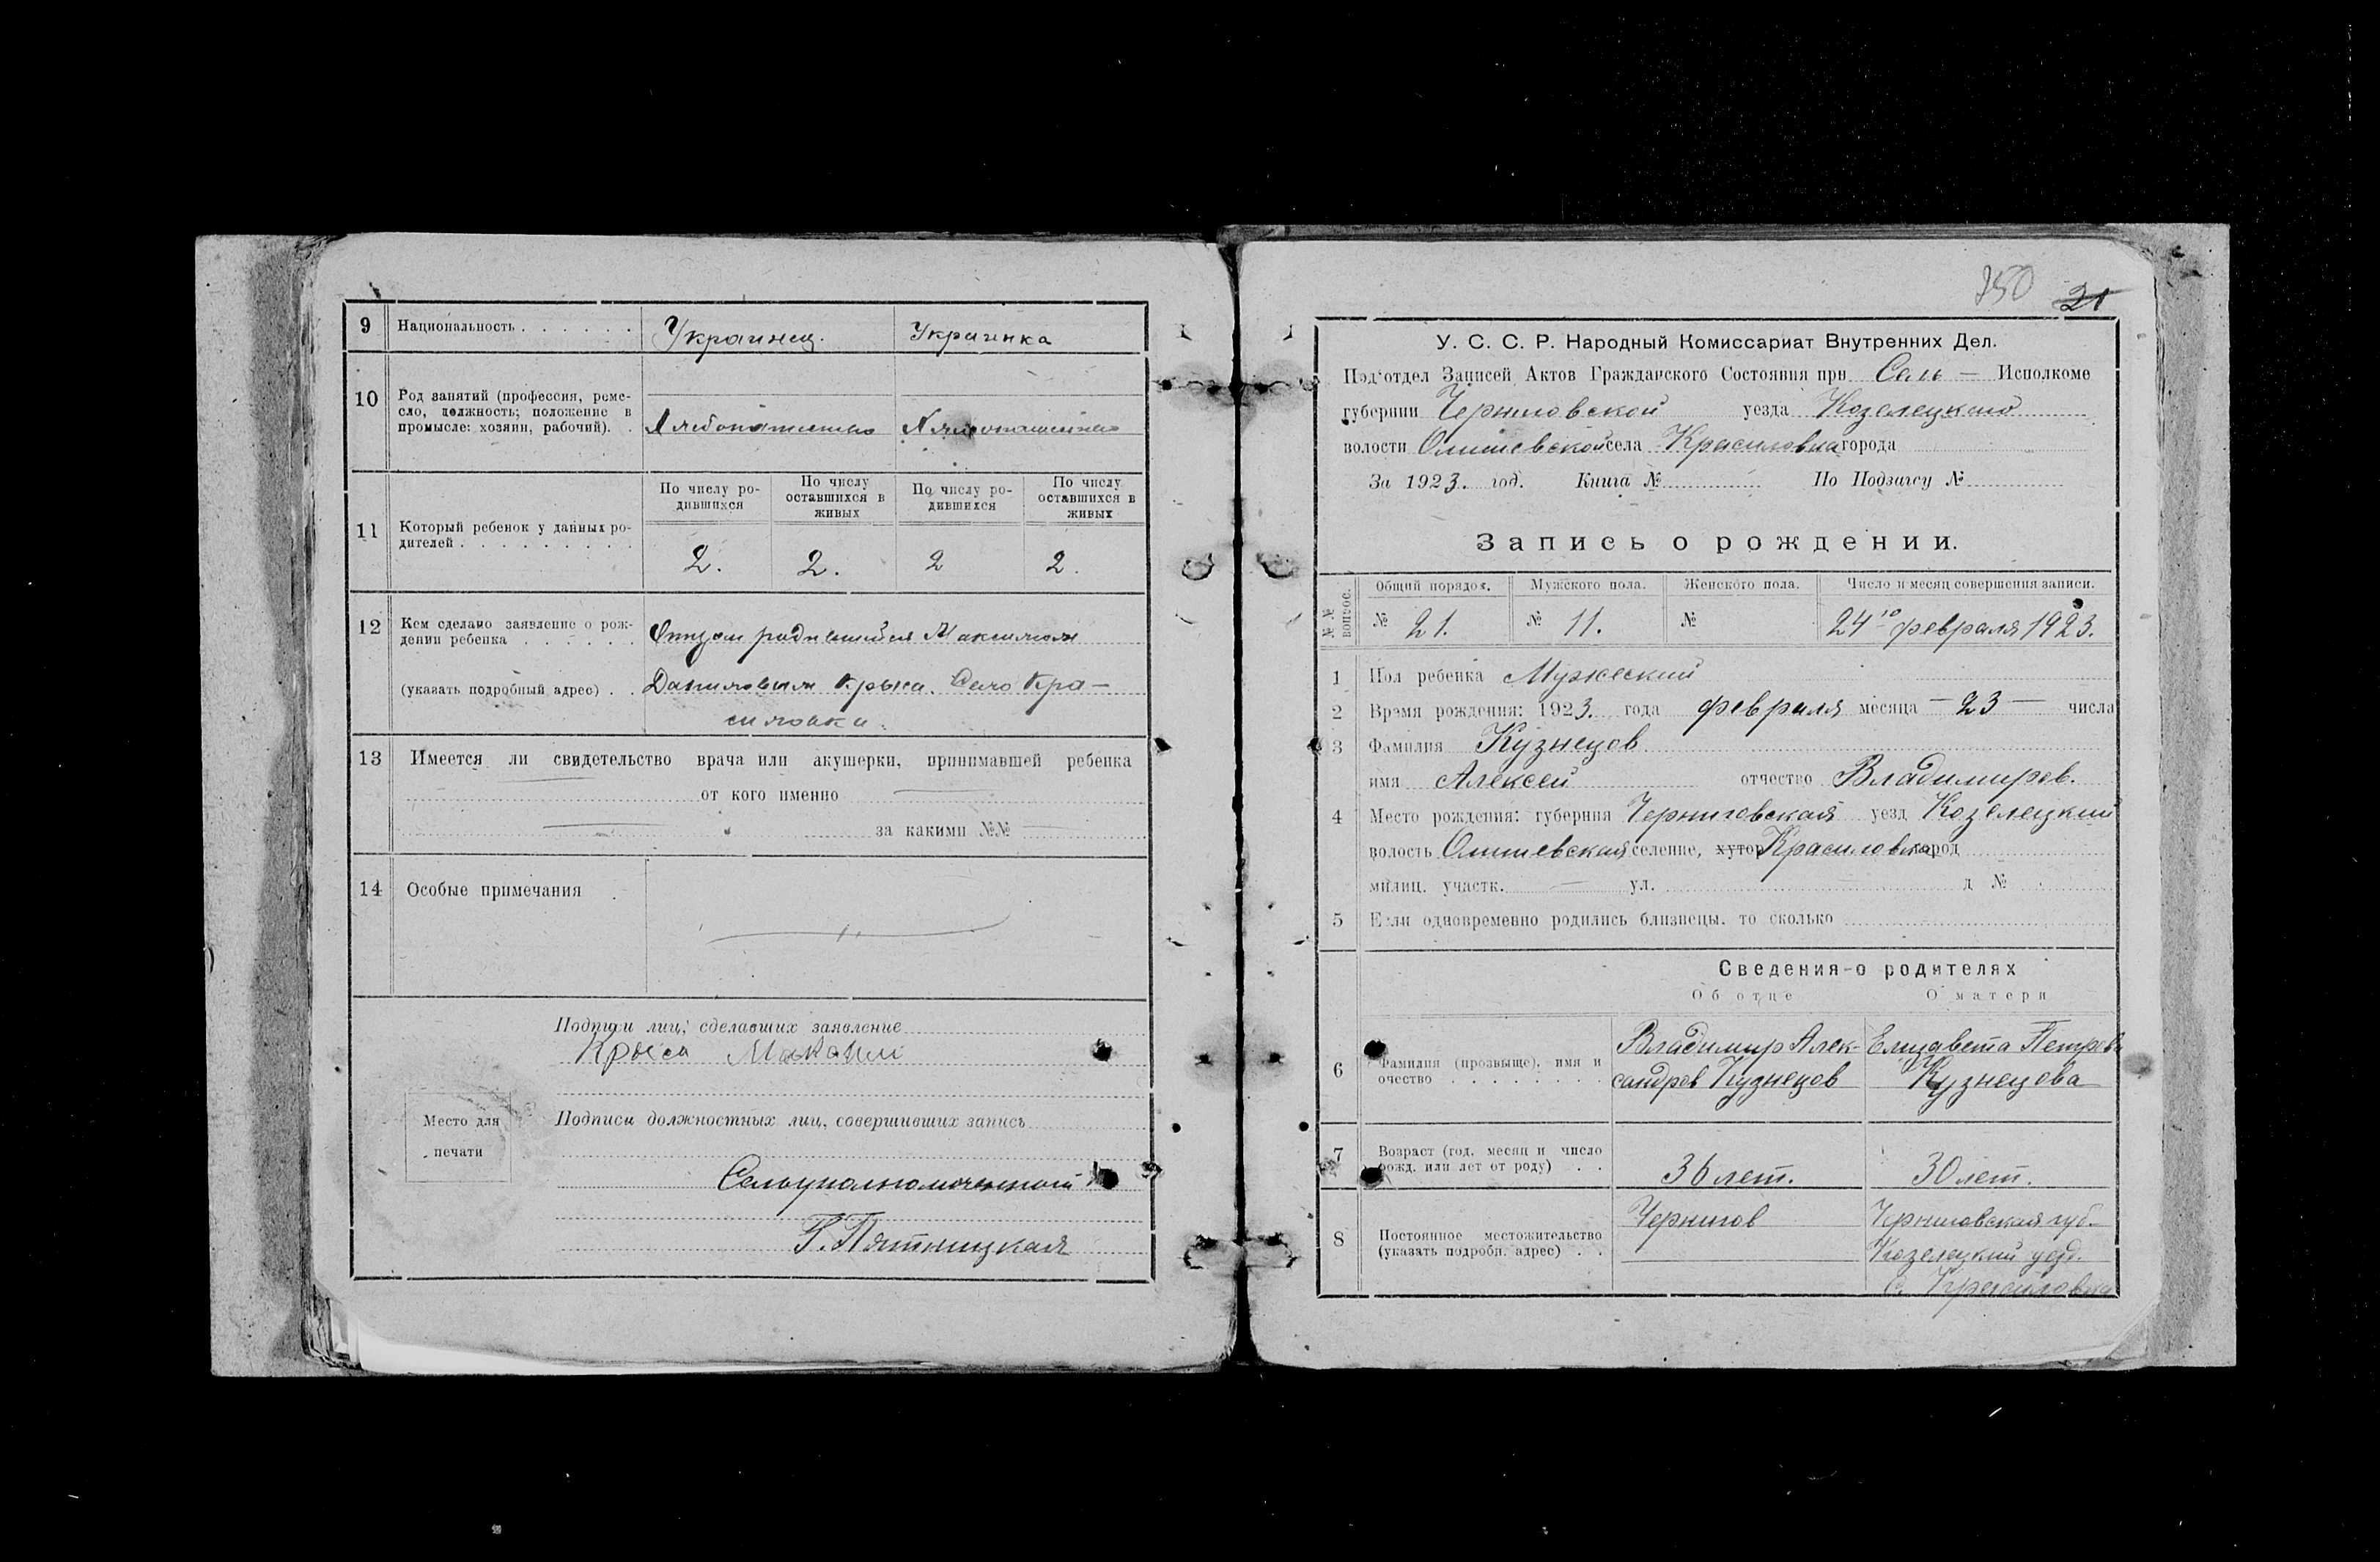 9 Национальность . . . . . . Украинец. Украинка
10 Род занятий (профессия, реме-
сло, должность; положение в
промысле: хозяин, рабочий). . Хлебопашество Хлебопашество
По числу ро-
дившихся
По числу
оставшихся в
живых
По числу ро-
дившихся
По числу
оставшихся в
живых
11 Который ребенок у данных ро-
дителей . . . . . . . . . 2. 2. 2 2.
12 Кем сделано заявление о рож-
дении ребенка . . . . . . Отцом родившийся Максимом
(указать подробный адрес) . . Даниловым Крыса. Село Кра-
силовка.
13 Имеется ли свидетельство врача или акушерки, принимавшей ребенка
от кого именно
за какими №№
14 Особые примечания
Подписи лиц, сделавших заявление
Крыса
Место для
печати
Подписи должностных лиц, совершивших запись
Сельуполномоченный
Г. Пятницкая
350 21
У. С. С. Р. Народный Комиссариат Внутренних Дел.
Подотдел Записей Актов Гражданского Состояния при Сель — Исполкоме
губернии Черниговской уезда Козелецкого
волости Олишевской села Красиловка города
За 1923. год. Книга № По Подзагсу №
Запись о рождении.
№№ вопрос.
Общий порядок. Мужского пола. Женского пола. Число и месяц совершения записи.
№ 21. № 11. № 24го февраля 1923.
1 Пол ребенка Мужеский
2 Время рождения: 1923. года февраля месяца — 23 — числа
3 Фамилия Кузнецов
имя Алексей отчество Владимиров.
4 Место рождения: губерния Черниговская уезд Козелецкий
волость Олишевская селение, хутор Красиловка город
милиц. участк. ул. д №
5 Если одновременно родились близнецы, то сколько
Сведения о родителях
Об отце О матери
6 Фамилия (прозвыще), имя и
очество . . . . . . . .
Владимир Алек-
сандров Кузнецов
Елизавета Петрова
Кузнецова
7 Возраст (год, месяц и число
рожд. или лет от роду) . . 36 лет. 30 лет.
8 Постоянное местожительство
(указать подробн. адрес) . .
Чернигов
Черниговская губ.
Козелецкий уезд.
с. Красиловка